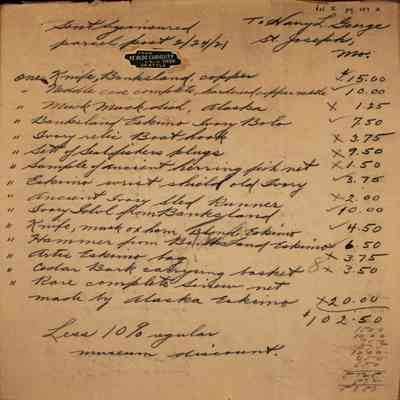 Sent by insured
parcel post 2/24/21
To Harry L. George
St. Joseph,
Mo.
FROM
YE OLDE CURIOSITY
SHOP
SEATTLE
one Knife, Banksland, copper $15.00
" Needle case complete, hardened copper needle 10.00
" Musk Musk dish, Alaska X 1.25
" Banksland Eskimo Ivory Bolo ✓ 7.50
" Ivory relic Boat hook X 3.75
" Set of Sealfishers plugs X 9.50
" Sample of ancient herring fish net X 1.50
" Eskimo wrist shield old Ivory ✓ 3.75
" Ancient Ivory Sled Runner X 2.00
" Ivory Idol from Banksland ✓ 10.00
" Knife, musk ox horn, Blond Eskimo ✓ 4.50
" Hammer from Banksland Eskimo 6.50
" Artic Eskimo bag X 3.75
" Cedar Bark carrying basket 8 X 3.50
" Rare complete Sinew net
made by Alaska Eskimo X 20.00
$102.50
Less 10% regular
museum discount.